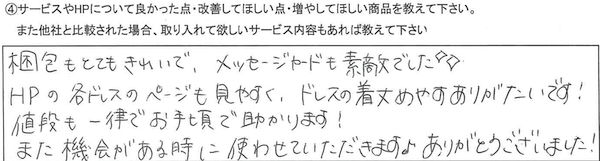 ④サービスやHPについて良かった点・改善してほしい点・増やしてほしい商品を教えて下さい。
また他社と比較された場合、取り入れて欲しいサービス内容もあれば教えて下さい
梱包もとてもきれいで、メッセージカードも素敵でした✧✧
HPの各ドレスのページも見やすく、ドレスの着丈めやすありがたいです!
値段も一律でお手頃で助かります!
また機会がある時に使わせていただきます♪ありがとうございました!